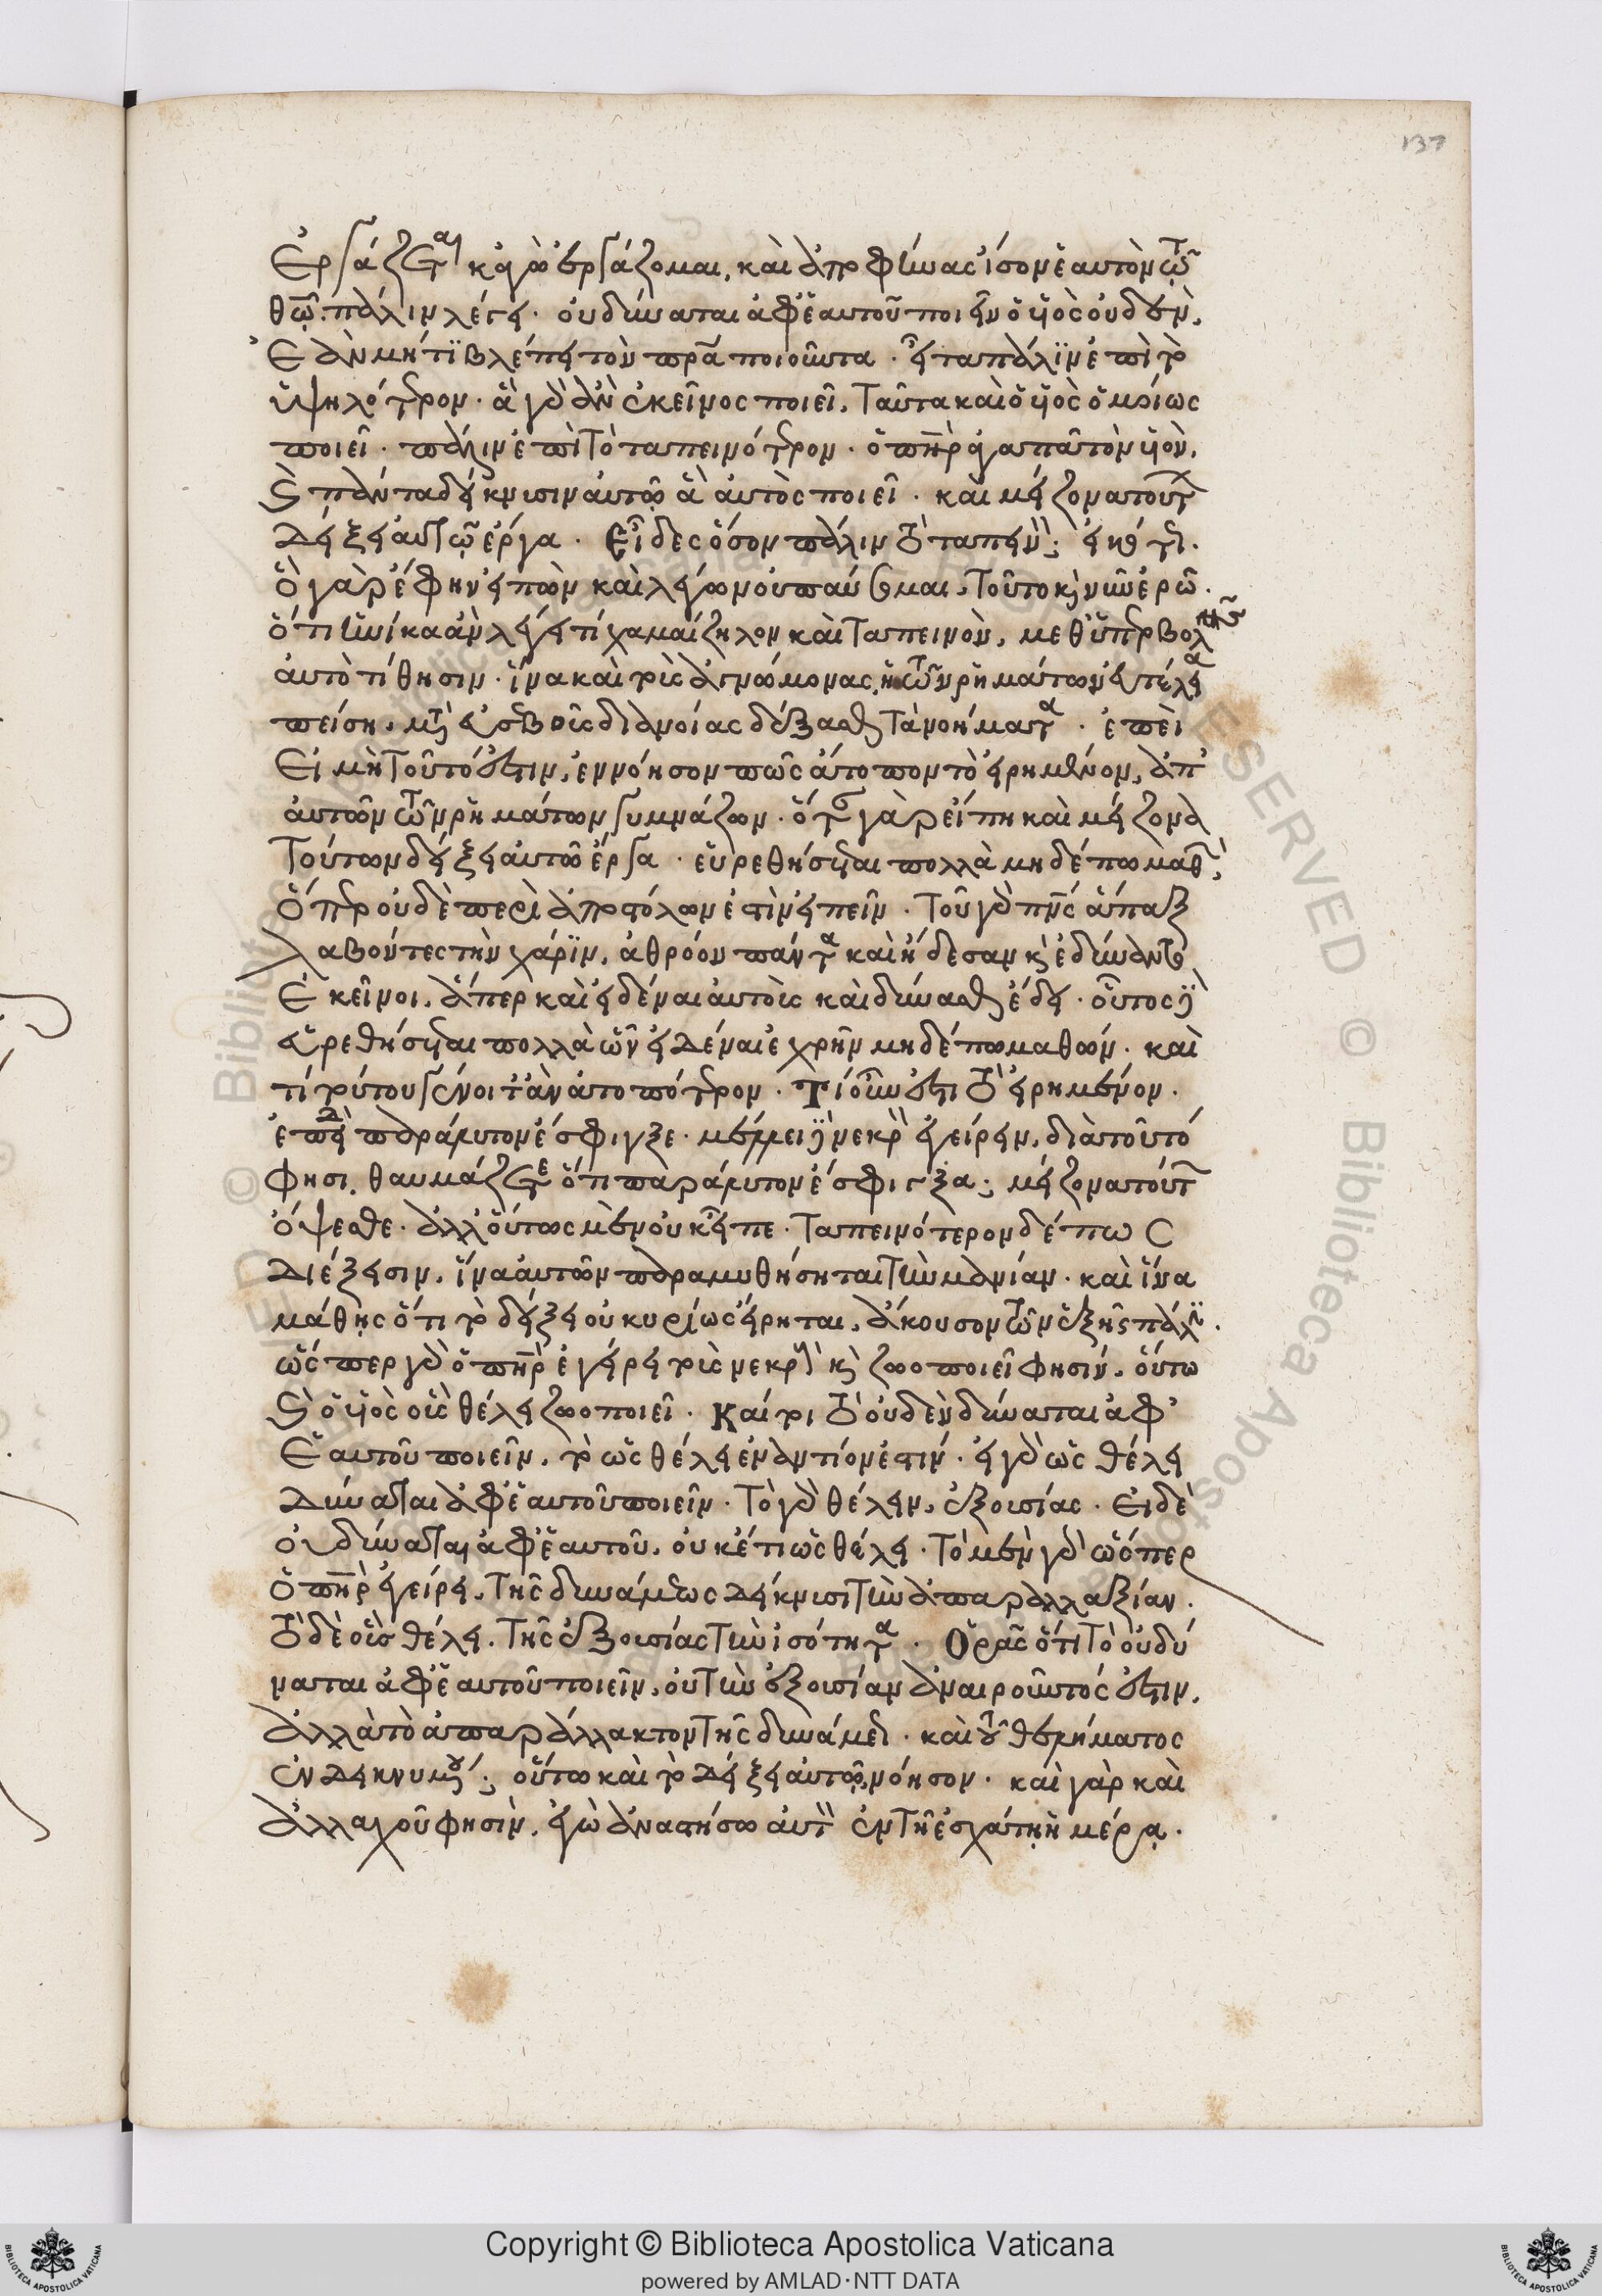 137
ἐργάζεται κἀγὼ ἐργάζομαι, καὶ ἀποφήνας ἴσον ἑαυτὸν τῶ
θεῶ. πάλιν λέγει· οὐ δύναται ἀφ' ἑαυτοῦ ποιεῖν ὁ υἱὸς οὐδὲν,
ἐὰν μήτι βλέπει τὸν πρα ποιοῦντα· εἶτα πάλιν ἐπὶ τὸ
ὑψηλότερον· ἃ γὰρ ἂν ἐκεῖνος ποιεῖ, ταῦτα καὶ ὁ υἱὸς ὁμοίως
ποιεῖ· πάλιν ἐπὶ τὸ ταπεινότερον· ὁ πηρ ἀγαπᾶ τὸν υἱὸν,
καὶ πάντα δείκνυσιν αὐτῶ ἃ αὐτὸς ποιεῖ· καὶ μείζονα τούτων
δείξει αὐτῶ ἔργα· Εἶδες ὅσον πάλιν τὸ ταπεινὸν;
ὃ γὰρ ἔφην εἰπὼν καὶ λέγων οὐ παύσομαι, τοῦτο καὶ νῦν ἐρῶ·
ὅτι ἡνίκα ἂν λέγει τί χαμαίζηλον καὶ ταπεινὸν, μεθ' ὑπερβολῆς
αὐτὸ τίθησιν· ἵνα καὶ τοὺς ἀγνώμονας, ἡ τῶν ῥημάτων εὐτέλεια
πείση, μετ' εὐσεβοῦς διανοίας δέξασθαι τὰ νοήματα· ἐπεὶ
εἰ μὴ τοῦτό ἐστιν, ἐννόησον πῶς ἄτοπον τὸ εἰρημένον, ἀπ'
αὐτῶν τῶν ῥημάτων γυμνάζων· ὅταν γὰρ εἴπη καὶ μείζονα
τούτων δείξει αὐτῶ ἔργα· εὑρεθήσεται πολλὰ μηδέπω μαθὼν,
ὅπερ οὐδὲ περὶ ἀποστόλων ἐστὶν εἰπεῖν· τοῦ γὰρ πνς ἅπαξ
λαβόντες τὴν χάριν, ἀθρόον πάντα καὶ ἤδεσαν καὶ ἐδύναντο
ἐκεῖνοι, ἅπερ καὶ εἰδέναι αὐτοὺς καὶ δύνασθαι ἔδει· οὗτος δὲ
εὑρεθήσεται πολλὰ ὧν εἰδέναι ἐχρῆν μηδέπω μαθὼν· καὶ
τί τούτου γένοιτ' ἂν ἀτοπότερον· Τί οὖν ἐστι τὸ εἰρημένον·
ἐπειδὴ παράλυτον ἔσφιγξε· μέλλει δὲ νεκρὸν ἐγείρειν, διὰ τοῦτό
φησι. θαυμάζετε ὅτι παράλυτον ἔσφιγξα; μείζονα τούτων
ὄψεσθε· ἀλλ' οὕτως μὲν οὐκ εἶπε· ταπεινότερον δέ πως
διέξεισιν, ἵνα αὐτῶν παραμυθήσηται τὴν μανίαν· καὶ ἵνα
μάθης ὅτι τὸ δείξει οὐ κυρίως εἴρηται, ἄκουσον τῶν ἑξῆς πάλιν·
ὥσπερ γὰρ ὁ πηρ ἐγείρει τοὺς νεκροὺς καὶ ζωοποιεῖ φησίν, οὕτω
καὶ ὁ υἱὸς οὓς θέλει ζωοποιεῖ· Καίτοι τὸ οὐδὲν δύναται ἀφ'
ἑαυτοῦ ποιεῖν, τὸ ὡς θέλει ἐναντίον ἐστίν· εἰ γὰρ ὡς θέλει
δύναται ἀφ' ἑαυτοῦ ποιεῖν· τὸ γὰρ θέλειν, ἐξουσίας· εἰ δὲ
οὐ δύναται ἀφ' ἑαυτοῦ, οὐκέτι ὡς θέλει· τὸ μὲν γὰρ ὥσπερ
ὁ πηρ ἐγείρει, τῆς δυνάμεως δείκνυσι τὴν ἀπαραλλαξίαν·
τὸ δὲ οὓς θέλει, τῆς ἐξουσίας τὴν ἰσότητα· Ὁρᾶς ὅτι τὸ οὐ δύ
ναται ἀφ' ἑαυτοῦ ποιεῖν, οὐ τὴν ἐξουσίαν ἀναιροῦντός ἐστιν,
ἀλλὰ τὸ ἀπαράλλακτον τῆς δυνάμεως· καὶ τοῦ θελήματος
ἐνδεικνυμένου; οὕτω καὶ τὸ δείξει αὐτῶ, νόησον· καὶ γὰρ καὶ
ἀλλαχοῦ φησὶν, ἐγὼ ἀναστήσω αὐτὸν ἐν τῆ ἐσχάτη ἡμέρα·
Copyright © Biblioteca Apostolica Vaticana
powered by AMLAD·NTT DATA